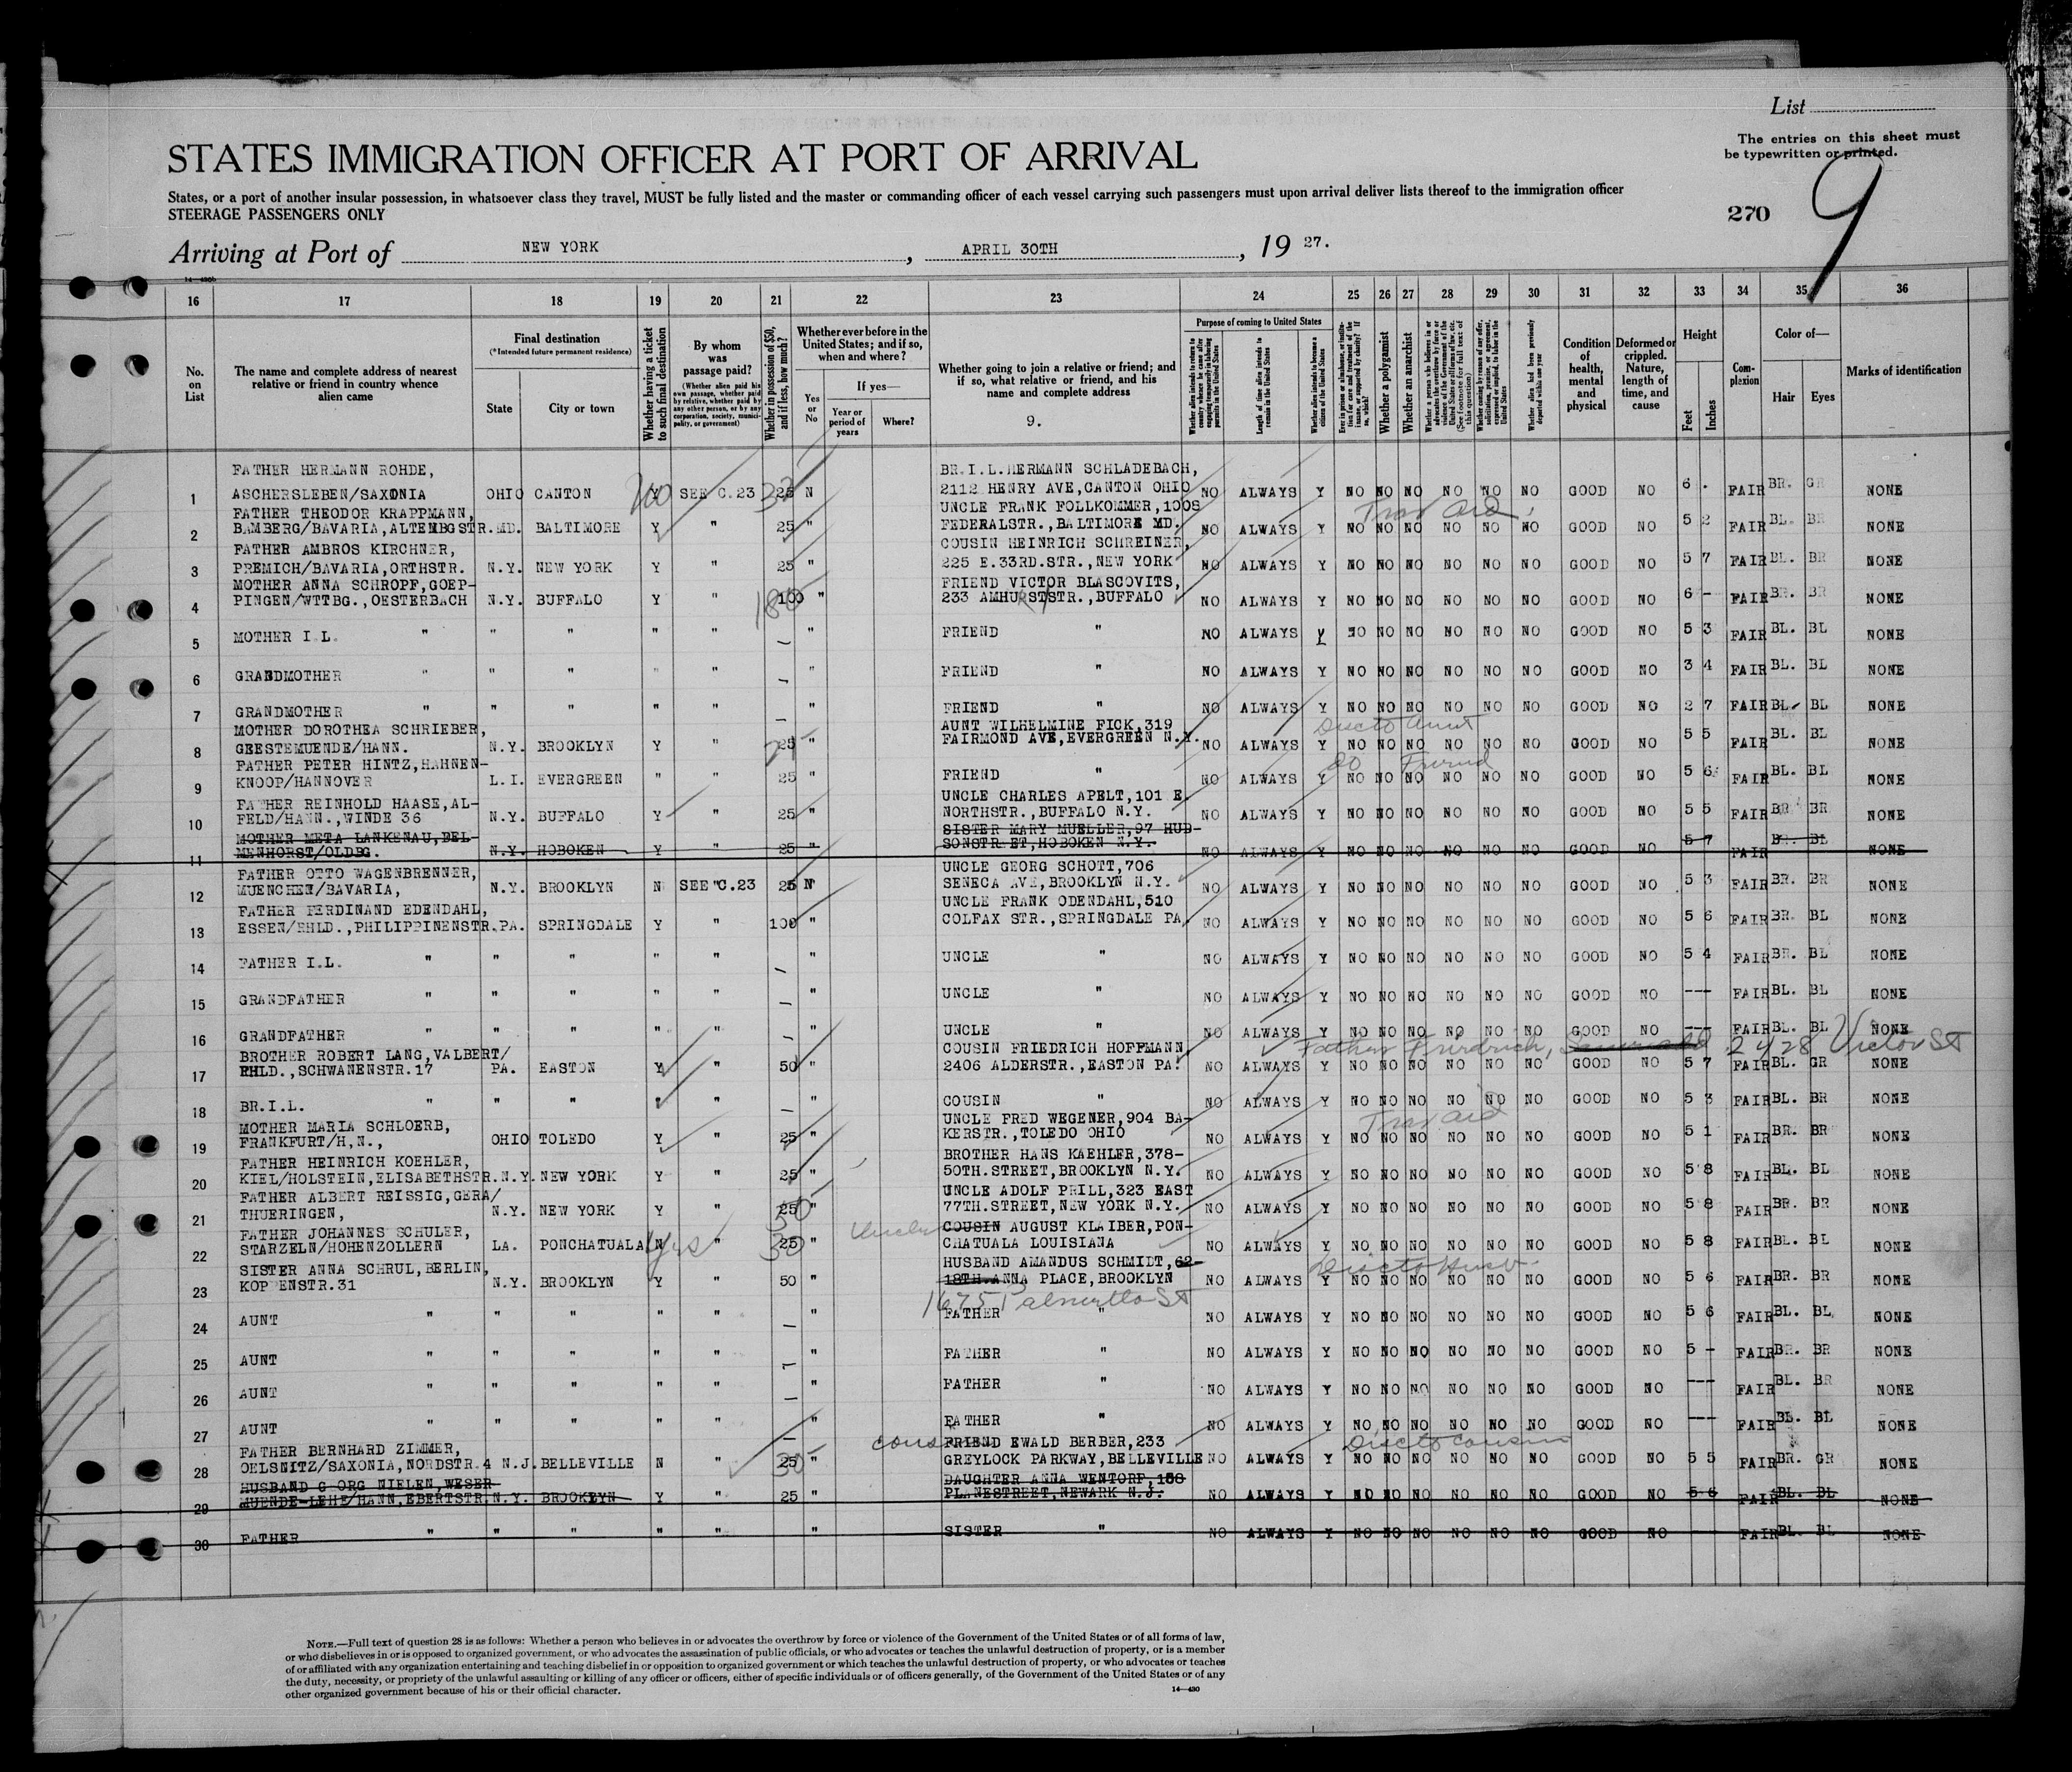 List
The entries on this sheet must
be typewritten or printed.
9
270
STATES IMMIGRATION OFFICER AT PORT OF ARRIVAL
States, or a port of another insular possession, in whatsoever class they travel, MUST be fully listed and the master or commanding officer of each vessel carrying such passengers must upon arrival deliver lists thereof to the immigration officer
STEERAGE PASSENGERS ONLY
Arriving at Port of NEW YORK, APRIL 30TH, 19 27.
16 17 18 19 20 21 22 23 24 25 26 27 28 29 30 31 32 33 34 35 36
No. on List
The name and complete address of nearest relative or friend in country whence alien came
Final destination
(*Intended future permanent residence)
State City or town
Whether having a ticket to such final destination
By whom was passage paid?
(Whether alien paid his own passage, whether paid by relative, whether paid by any other person, or by any corporation, society, municipality, or government)
Whether in possession of $50, and if less, how much?
Whether ever before in the United States; and if so, when and where?
Yes or No
If yes—
Year or period of years
Where?
Whether going to join a relative or friend; and if so, what relative or friend, and his name and complete address
9.
Purpose of coming to United States
Length of time alien intends to remain in the United States
Whether alien intends to become a citizen of the United States
Whether a polygamist
Whether an anarchist
Condition of health, mental and physical
Deformed or crippled. Nature, length of time, and cause
Height
Feet Inches
Complexion
Color of—
Hair Eyes
Marks of identification
FATHER HERMANN ROHDE, BR.I.L.HERMANN SCHLADEBACH,
1 ASCHERSLEBEN/SAXONIA OHIO CANTON Y SEE C.23 25 N 2112 HENRY AVE,CANTON OHIO NO ALWAYS Y NO NO NO NO NO NO GOOD NO 6 . FAIR BR. GR NONE
FATHER THEODOR KRAPPMANN, UNCLE FRANK FOLLKOMMER,1008
2 BAMBERG/BAVARIA,ALTENBGSTR. MD. BALTIMORE Y " 25 " FEDERALSTR.,BALTIMORE MD. NO ALWAYS Y NO NO NO NO NO NO GOOD NO 5 2 FAIR BL. BR NONE
Trav aid
FATHER AMBROS KIRCHNER, COUSIN HEINRICH SCHREINER,
3 PREMICH/BAVARIA,ORTHSTR. N.Y. NEW YORK Y " 25 " 225 E.33RD.STR.,NEW YORK NO ALWAYS Y NO NO NO NO NO NO GOOD NO 5 7 FAIR BL. BR NONE
MOTHER ANNA SCHROPF,GOEP- FRIEND VICTOR BLASCOVITS,
4 PINGEN/WTTBG.,OESTERBACH N.Y. BUFFALO Y " 100 " 233 AMHURSTSTR.,BUFFALO NO ALWAYS Y NO NO NO NO NO NO GOOD NO 6 - FAIR BR. BR NONE
5 MOTHER I.L. " " " " " — " FRIEND " NO ALWAYS Y NO NO NO NO NO NO GOOD NO 5 3 FAIR BL. BL NONE
6 GRANDMOTHER " " " " " — " FRIEND " NO ALWAYS Y NO NO NO NO NO NO GOOD NO 3 4 FAIR BL. BL NONE
7 GRANDMOTHER " " " " " — " FRIEND " NO ALWAYS Y NO NO NO NO NO NO GOOD NO 2 7 FAIR BL. BL NONE
MOTHER DOROTHEA SCHRIEBER, AUNT WILHELMINE FICK,319
8 GEESTEMUENDE/HANN. N.Y. BROOKLYN Y " 25 " FAIRMOND AVE,EVERGREEN N.Y. NO ALWAYS Y NO NO NO NO NO NO GOOD NO 5 5 FAIR BL. BL NONE
FATHER PETER HINTZ,HAHNEN-
9 KNOOP/HANNOVER L.I. EVERGREEN " " 25 " FRIEND " NO ALWAYS Y NO NO NO NO NO NO GOOD NO 5 6 FAIR BL. BL NONE
do Friend
FATHER REINHOLD HAASE,AL- UNCLE CHARLES APELT,101 E.
10 FELD/HANN.,WINDE 36 N.Y. BUFFALO Y " 25 " NORTHSTR.,BUFFALO N.Y. NO ALWAYS Y NO NO NO NO NO NO GOOD NO 5 5 FAIR BR BR NONE
MOTHER META LANKENAU,DEL- SISTER MARY MUELLER,97 HUD-
11 MENHORST/OLDBG. N.Y. HOBOKEN Y " 25 " SONSTREET,HOBOKEN N.Y. NO ALWAYS Y NO NO NO NO NO NO GOOD NO 5 7 FAIR BR. BL NONE
FATHER OTTO WAGENBRENNER, UNCLE GEORG SCHOTT,706
12 MUENCHEN/BAVARIA, N.Y. BROOKLYN N SEE C.23 25 N SENECA AVE,BROOKLYN N.Y. NO ALWAYS Y NO NO NO NO NO NO GOOD NO 5 3 FAIR BR. BR NONE
FATHER FERDINAND EDENDAHL, UNCLE FRANK ODENDAHL,510
13 ESSEN/RHLD.,PHILIPPINENSTR. PA. SPRINGDALE Y " 100 " COLFAX STR.,SPRINGDALE PA. NO ALWAYS Y NO NO NO NO NO NO GOOD NO 5 6 FAIR BR. BL NONE
14 FATHER I.L. " " " " " — " UNCLE " NO ALWAYS Y NO NO NO NO NO NO GOOD NO 5 4 FAIR BR. BL NONE
15 GRANDFATHER " " " " " — " UNCLE " NO ALWAYS Y NO NO NO NO NO NO GOOD NO --- FAIR BL. BL NONE
16 GRANDFATHER " " " " " — " UNCLE " NO ALWAYS Y NO NO NO NO NO NO GOOD NO --- FAIR BL. BL NONE
BROTHER ROBERT LANG,VALBERT/ COUSIN FRIEDRICH HOFFMANN Father Friedrich, 2428 Victor St
17 RHLD.,SCHWANENSTR.17 PA. EASTON Y " 50 " 2406 ALDERSTR.,EASTON PA. NO ALWAYS Y NO NO NO NO NO NO GOOD NO 5 7 FAIR BL. GR NONE
18 BR.I.L. " " " " " — " COUSIN " NO ALWAYS Y NO NO NO NO NO NO GOOD NO 5 3 FAIR BL. BR NONE
MOTHER MARIA SCHLOERB, UNCLE FRED WEGENER,904 BA- Trav aid
19 FRANKFURT/H,N., OHIO TOLEDO Y " 25 " KERSTR.,TOLEDO OHIO NO ALWAYS Y NO NO NO NO NO NO GOOD NO 5 1 FAIR BR. BR NONE
FATHER HEINRICH KOEHLER, BROTHER HANS KAEHLER,378-
20 KIEL/HOLSTEIN,ELISABETHSTR. N.Y. NEW YORK Y " 25 " 50TH.STREET,BROOKLYN N.Y. NO ALWAYS Y NO NO NO NO NO NO GOOD NO 5 8 FAIR BL. BL NONE
FATHER ALBERT REISSIG,GERA/ UNCLE ADOLF PRILL,323 EAST
21 THUERINGEN, N.Y. NEW YORK Y " 25 " 77TH.STREET,NEW YORK N.Y. NO ALWAYS Y NO NO NO NO NO NO GOOD NO 5 8 FAIR BR. BR NONE
FATHER JOHANNES SCHULER, Uncle COUSIN AUGUST KLAIBER,PON-
22 STARZELN/HOHENZOLLERN LA. PONCHATUALA N yes " 25 30 " CHATUALA LOUISIANA NO ALWAYS Y NO NO NO NO NO NO GOOD NO 5 8 FAIR BL. BL NONE
SISTER ANNA SCHRUL,BERLIN, HUSBAND AMANDUS SCHMIDT,62-
23 KOPPENSTR.31 N.Y. BROOKLYN Y " 50 " 18TH ANNA PLACE,BROOKLYN NO ALWAYS Y NO NO NO NO NO NO GOOD NO 5 6 FAIR BR. BR NONE
1675 Palmetto St
24 AUNT " " " " " — " FATHER " NO ALWAYS Y NO NO NO NO NO NO GOOD NO 5 6 FAIR BL. BL NONE
25 AUNT " " " " " — " FATHER " NO ALWAYS Y NO NO NO NO NO NO GOOD NO 5 - FAIR BR. BR NONE
26 AUNT " " " " " — " FATHER " NO ALWAYS Y NO NO NO NO NO NO GOOD NO --- FAIR BL. BR NONE
27 AUNT " " " " " — " FATHER " NO ALWAYS Y NO NO NO NO NO NO GOOD NO --- FAIR BL. BL NONE
FATHER BERNHARD ZIMMER, cous FRIEND EWALD BERBER,233
28 OELSNITZ/SAXONIA,NORDSTR.4 N.J. BELLEVILLE N " 25 30 " GREYLOCK PARKWAY,BELLEVILLE NO ALWAYS Y NO NO NO NO NO NO GOOD NO 5 5 FAIR BR. GR NONE
HUSBAND G ORG NIELEN,WESER- DAUGHTER ANNA WENTORF,158
29 MUENDE-LEHE/HANN,EBERTSTR. N.Y. BROOKLYN Y " 25 " PLANESTREET,NEWARK N.J. NO ALWAYS Y NO NO NO NO NO NO GOOD NO 5 6 FAIR BL. BL NONE
30 FATHER " " " " " " SISTER " NO ALWAYS Y NO NO NO NO NO NO GOOD NO FAIR BL. BL NONE
NOTE.—Full text of question 28 is as follows: Whether a person who believes in or advocates the overthrow by force or violence of the Government of the United States or of all forms of law,
or who disbelieves in or is opposed to organized government, or who advocates the assassination of public officials, or who advocates or teaches the unlawful destruction of property, or is a member
of or affiliated with any organization entertaining and teaching disbelief in or opposition to organized government or which teaches the unlawful destruction of property, or who advocates or teaches
the duty, necessity, or propriety of the unlawful assaulting or killing of any officer or officers, either of specific individuals or of officers generally, of the Government of the United States or of any
other organized government because of his or their official character.
14—430